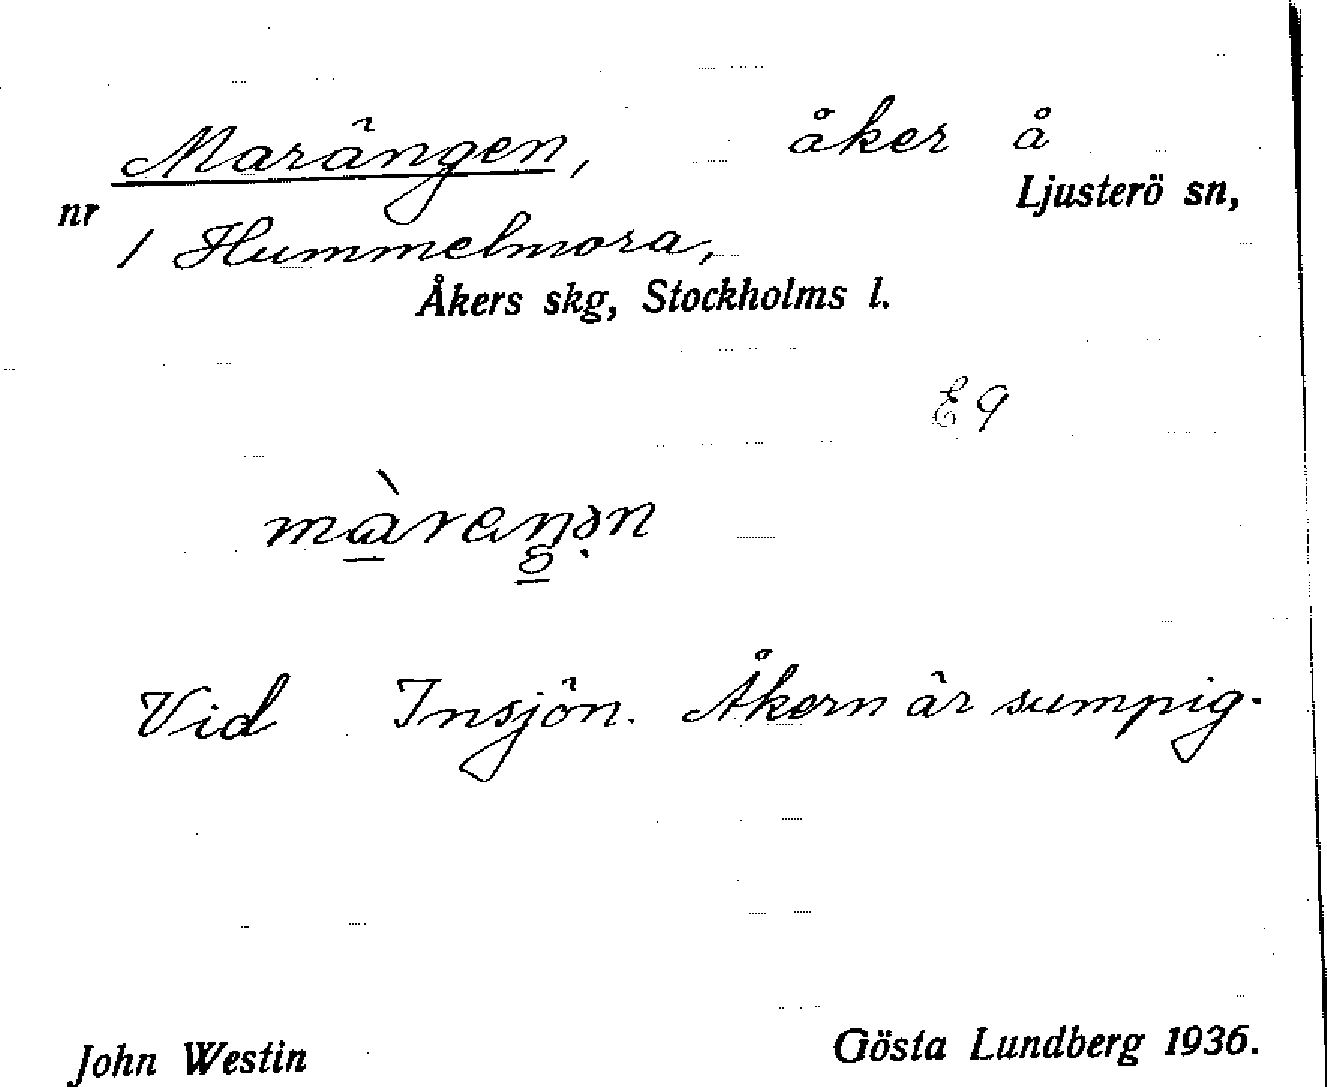 Marängen, åker å
nr Ljusterö sn,
1 Hummelmora,
Åkers skg, Stockholms l.
E9
Vid Insjön. Åkern är sumpig.
John Westin Gösta Lundberg 1936.